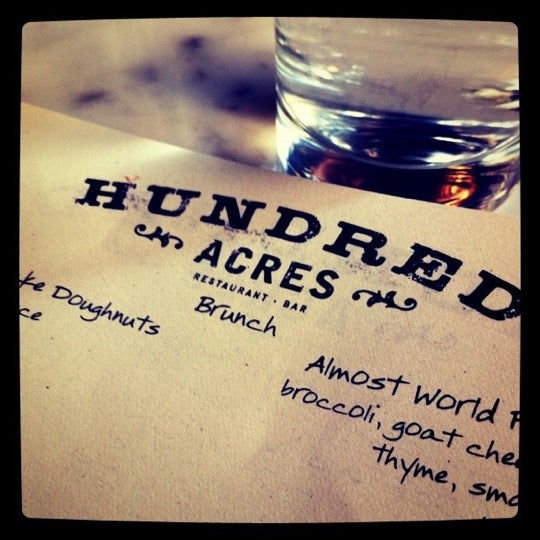 HUNDRED
ACRES
RESTAURANT · BAR
Brunch
Doughnuts
Almost World
broccoli, goat
thyme,